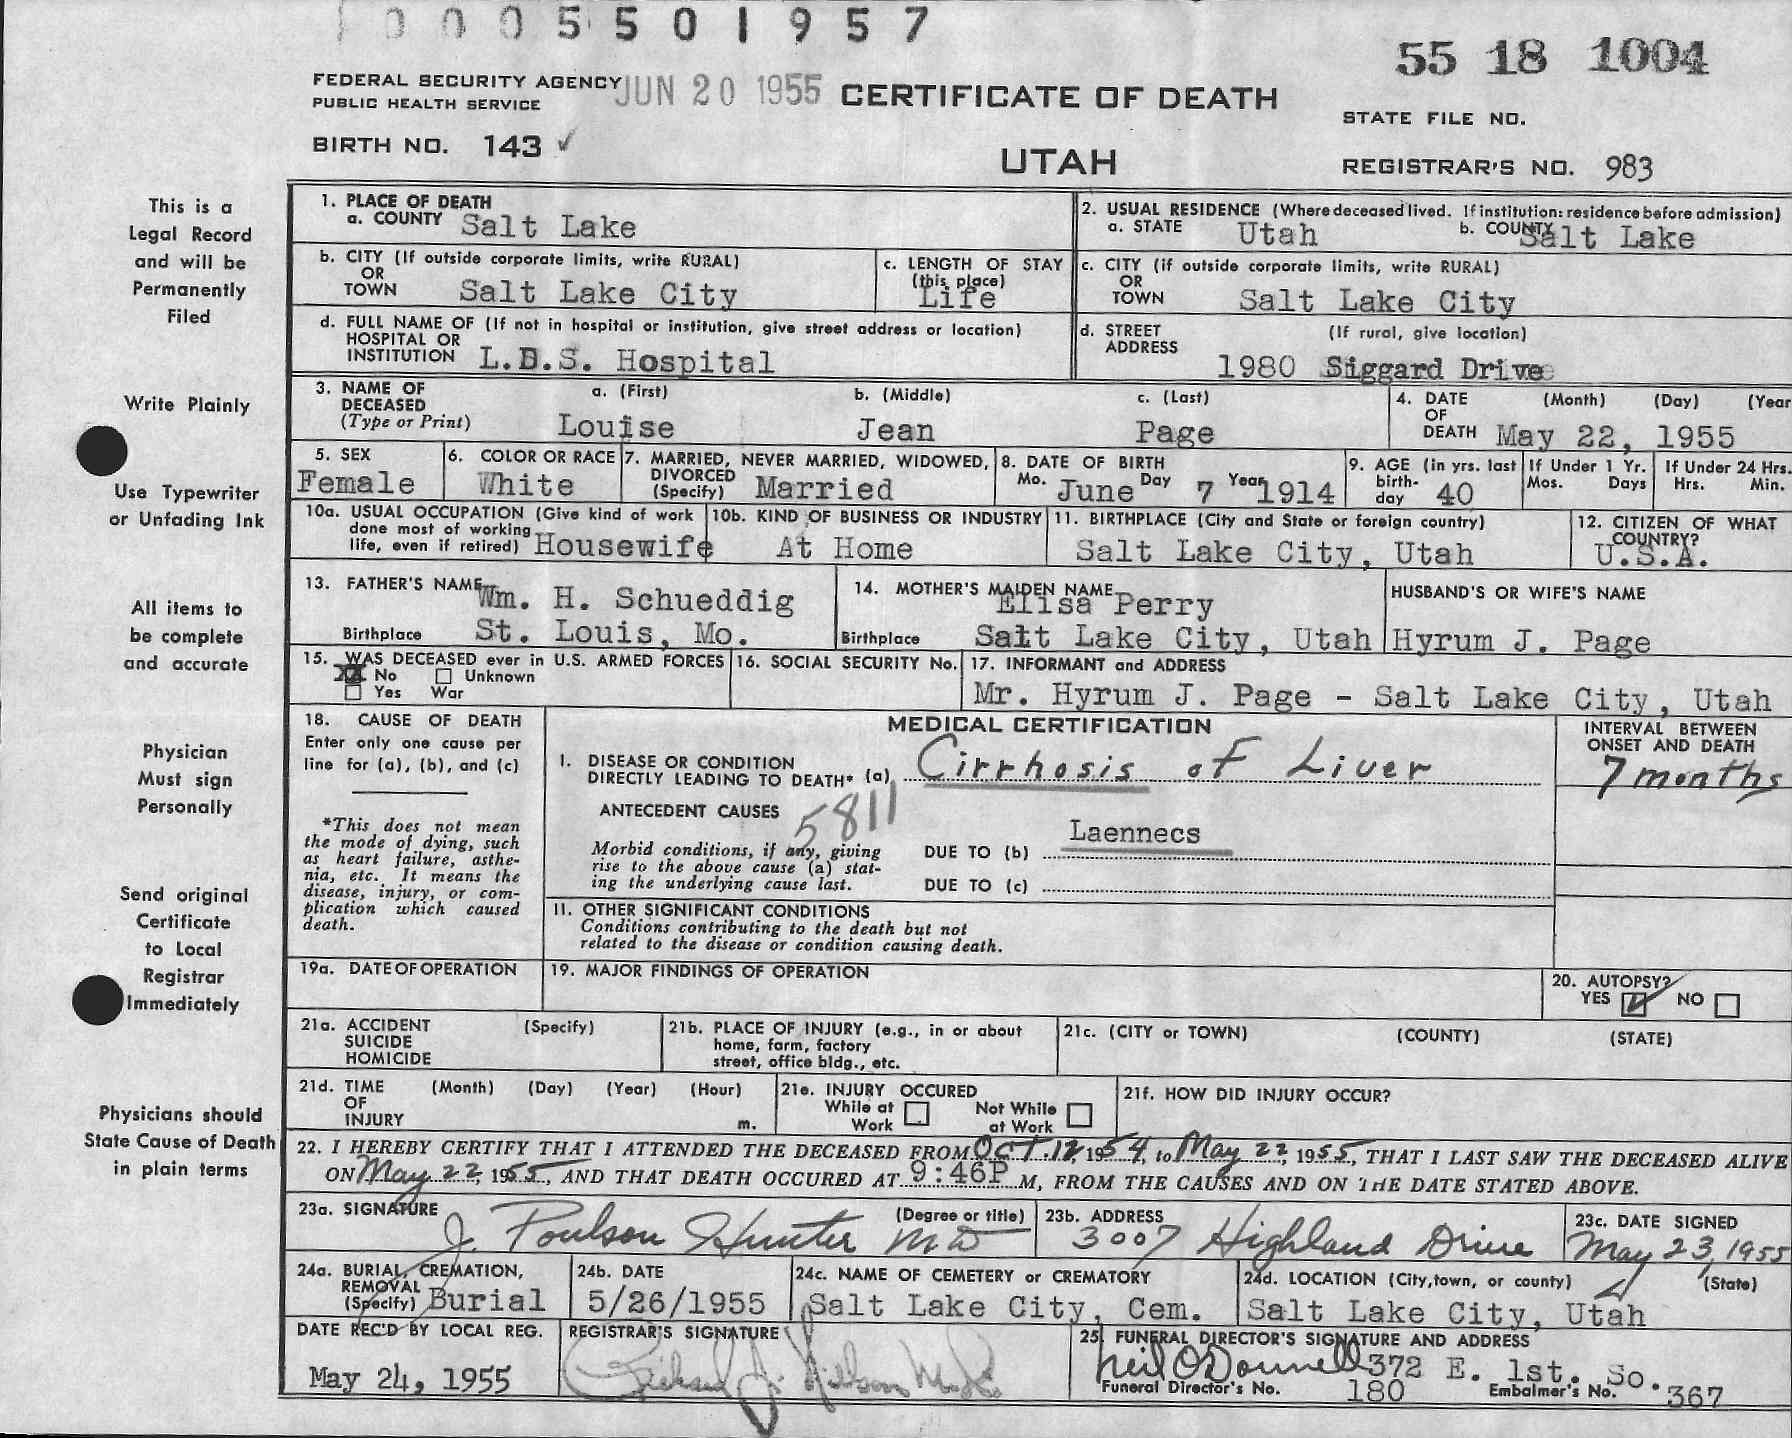 0005501957
55 18 1004
FEDERAL SECURITY AGENCY JUN 20 1955 CERTIFICATE OF DEATH
PUBLIC HEALTH SERVICE
STATE FILE NO.
BIRTH NO. 143 ✓
UTAH
REGISTRAR'S NO. 983
This is a
Legal Record
and will be
Permanently
Filed
Write Plainly
Use Typewriter
or Unfading Ink
All items to
be complete
and accurate
Physician
Must sign
Personally
Send original
Certificate
to Local
Registrar
Immediately
Physicians should
State Cause of Death
in plain terms
1. PLACE OF DEATH
a. COUNTY Salt Lake
2. USUAL RESIDENCE (Where deceased lived. If institution: residence before admission)
a. STATE Utah b. COUNTY Salt Lake
b. CITY (If outside corporate limits, write RURAL)
OR
TOWN Salt Lake City
c. LENGTH OF STAY
(this place)
Life
c. CITY (if outside corporate limits, write RURAL)
OR
TOWN Salt Lake City
d. FULL NAME OF (If not in hospital or institution, give street address or location)
HOSPITAL OR
INSTITUTION L.D.S. Hospital
d. STREET (If rural, give location)
ADDRESS
1980 Siggard Drive
3. NAME OF a. (First) b. (Middle) c. (Last)
DECEASED
(Type or Print) Louise Jean Page
4. DATE (Month) (Day) (Year
OF
DEATH May 22, 1955
5. SEX
Female
6. COLOR OR RACE
White
7. MARRIED, NEVER MARRIED, WIDOWED,
DIVORCED
(Specify) Married
8. DATE OF BIRTH
Mo. June Day 7 Year 1914
9. AGE (in yrs. last
birth-
day 40
If Under 1 Yr.
Mos. Days
If Under 24 Hrs.
Hrs. Min.
10a. USUAL OCCUPATION (Give kind of work
done most of working
life, even if retired) Housewife
10b. KIND OF BUSINESS OR INDUSTRY
At Home
11. BIRTHPLACE (City and State or foreign country)
Salt Lake City, Utah
12. CITIZEN OF WHAT
COUNTRY?
U.S.A.
13. FATHER'S NAME Wm. H. Schueddig
Birthplace St. Louis, Mo.
14. MOTHER'S MAIDEN NAME Elisa Perry
Birthplace Salt Lake City, Utah
HUSBAND'S OR WIFE'S NAME
Hyrum J. Page
15. WAS DECEASED ever in U.S. ARMED FORCES
No Unknown
Yes War
16. SOCIAL SECURITY No.
17. INFORMANT and ADDRESS
Mr. Hyrum J. Page - Salt Lake City, Utah
18. CAUSE OF DEATH
Enter only one cause per
line for (a), (b), and (c)
*This does not mean
the mode of dying, such
as heart failure, asthe-
nia, etc. It means the
disease, injury, or com-
plication which caused
death.
MEDICAL CERTIFICATION
I. DISEASE OR CONDITION
DIRECTLY LEADING TO DEATH* (a) Cirrhosis of Liver
ANTECEDENT CAUSES
5811
Morbid conditions, if any, giving
rise to the above cause (a) stat-
ing the underlying cause last.
DUE TO (b) Laennecs
DUE TO (c)
II. OTHER SIGNIFICANT CONDITIONS
Conditions contributing to the death but not
related to the disease or condition causing death.
INTERVAL BETWEEN
ONSET AND DEATH
7 months
19a. DATE OF OPERATION
19. MAJOR FINDINGS OF OPERATION
20. AUTOPSY?
YES NO
21a. ACCIDENT (Specify)
SUICIDE
HOMICIDE
21b. PLACE OF INJURY (e.g., in or about
home, farm, factory
street, office bldg., etc.
21c. (CITY or TOWN) (COUNTY) (STATE)
21d. TIME (Month) (Day) (Year) (Hour)
OF
INJURY m.
21e. INJURY OCCURED
While at Work Not While at Work
21f. HOW DID INJURY OCCUR?
22. I HEREBY CERTIFY THAT I ATTENDED THE DECEASED FROM Oct. 12, 1954, to May 22, 1955, THAT I LAST SAW THE DECEASED ALIVE
ON May 22, 1955, AND THAT DEATH OCCURED AT 9:46P M, FROM THE CAUSES AND ON THE DATE STATED ABOVE.
23a. SIGNATURE (Degree or title)
J. Poulson Hunter MD
23b. ADDRESS
3007 Highland Drive
23c. DATE SIGNED
May 23, 1955
24a. BURIAL, CREMATION,
REMOVAL
(Specify) Burial
24b. DATE
5/26/1955
24c. NAME OF CEMETERY or CREMATORY
Salt Lake City, Cem.
24d. LOCATION (City, town, or county) (State)
Salt Lake City, Utah
DATE REC'D BY LOCAL REG.
May 24, 1955
REGISTRAR'S SIGNATURE
25. FUNERAL DIRECTOR'S SIGNATURE AND ADDRESS
Neil O'Donnell 372 E. 1st. So.
Funeral Director's No. 180 Embalmer's No. 367